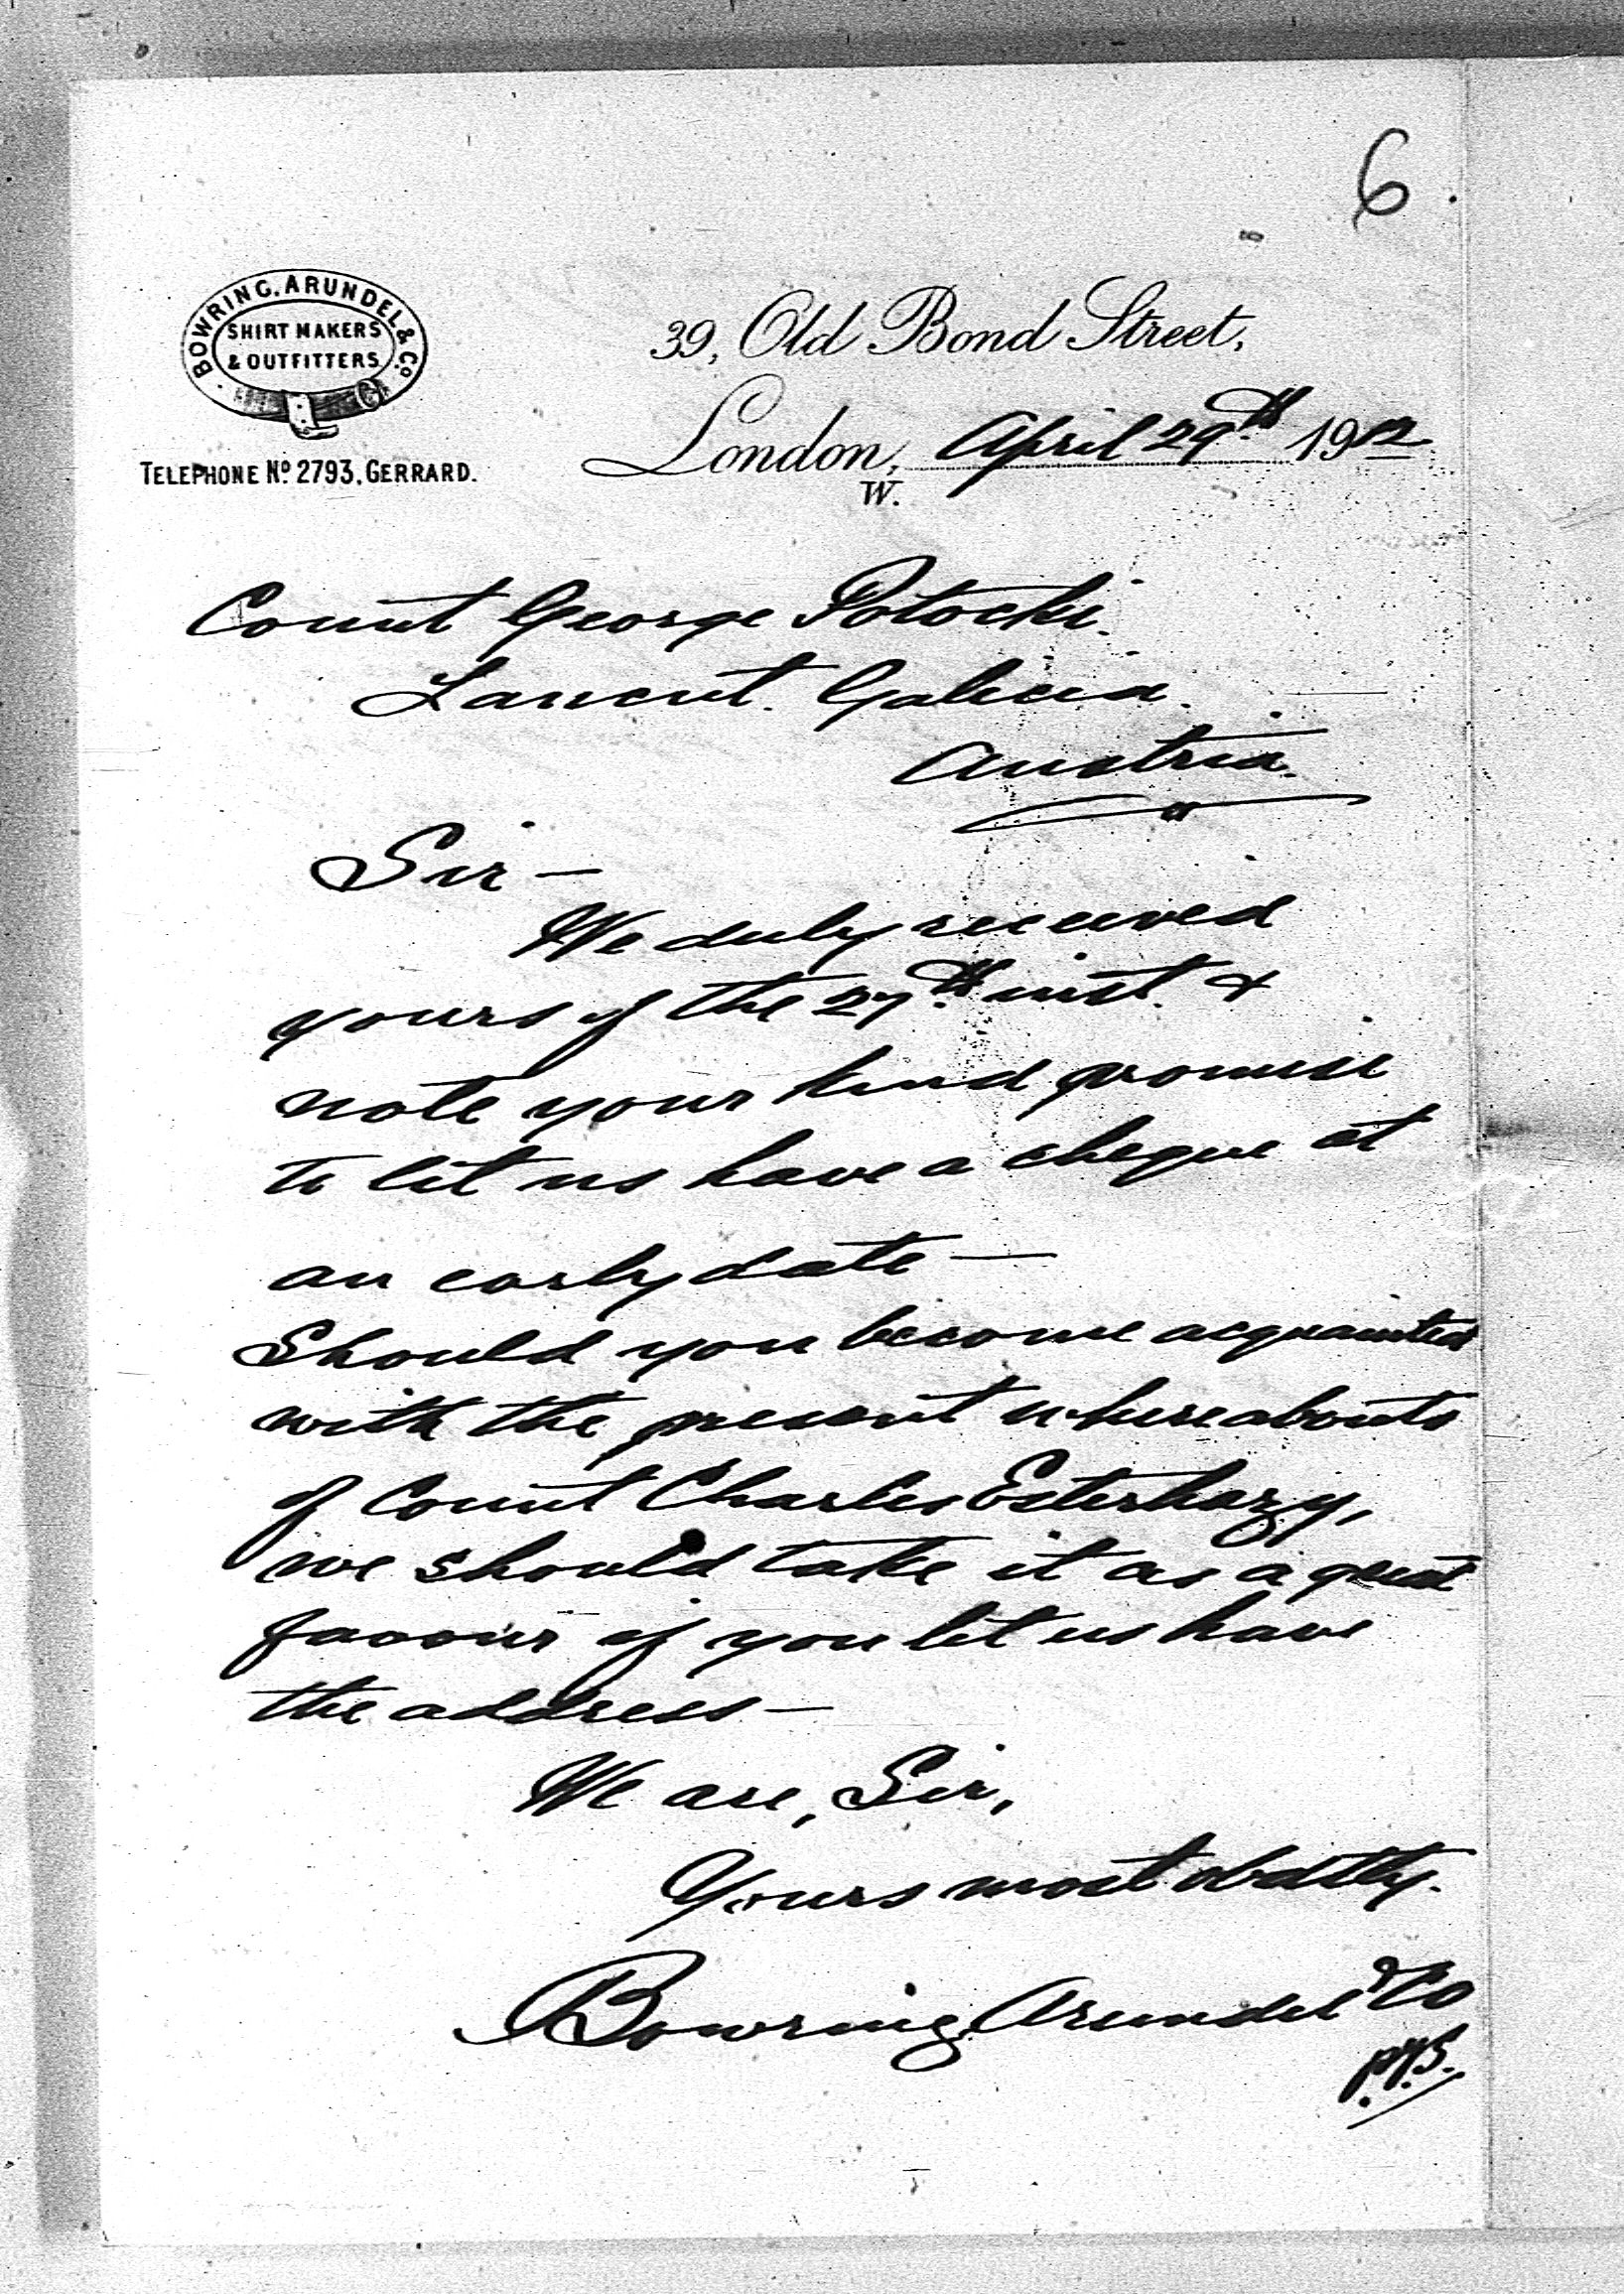 6.
BOWRING, ARUNDEL & Co.
SHIRT MAKERS
& OUTFITTERS
TELEPHONE No. 2793, GERRARD.
39, Old Bond Street,
London, April 29th 1912
W.
Count George Potocki.
Lancut. Galicia.
Austria.
Sir —
We duly received
yours of the 27th inst. &
note your kind promise
to let us have a cheque at
an early date —
Should you become acquainted
with the present whereabouts
of Count Charles Esterhazy,
we should take it as a great
favour if you let us have
the address —
We are, Sir,
Yours most obdtly.
Bowring Arundel & Co